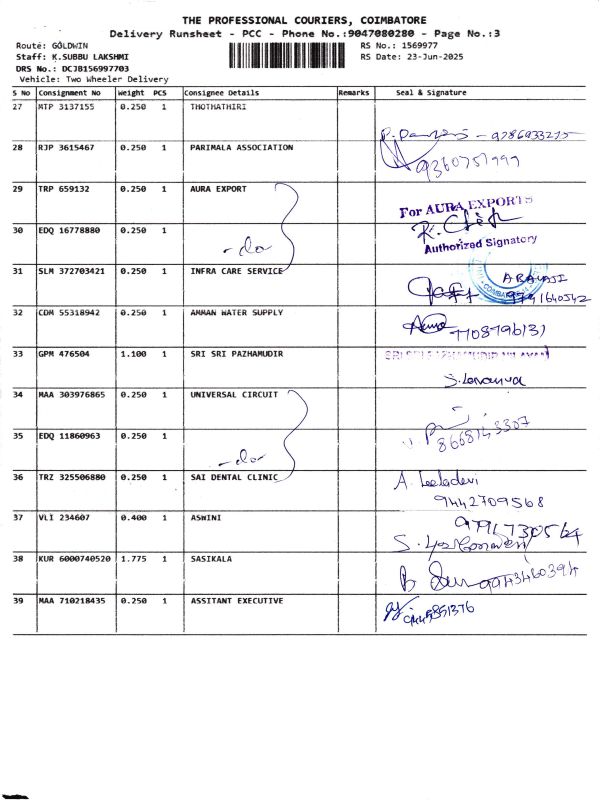 THE PROFESSIONAL COURIERS, COIMBATORE
Delivery Runsheet - PCC - Phone No.:9047080280 - Page No.:3
Route: GOLDWIN
Staff: K.SUBBU LAKSHMI
DRS No.: DCJB156997703
Vehicle: Two Wheeler Delivery
RS No.: 1569977
RS Date: 23-Jun-2025
S No Consignment No Weight PCS Consignee Details Remarks Seal & Signature
27 MTP 3137155 0.250 1 THOTHATHIRI
28 RJP 3615467 0.250 1 PARIMALA ASSOCIATION
9360751999
29 TRP 659132 0.250 1 AURA EXPORT
For AURA EXPORTS
30 EDQ 16778880 0.250 1 -do-
Authorized Signatory
31 SLM 372703421 0.250 1 INFRA CARE SERVICE
9791640542
32 CDM 55318942 0.250 1 AMMAN WATER SUPPLY
7708796131
33 GPM 476504 1.100 1 SRI SRI PAZHAMUDIR
S. Lavanya
34 MAA 303976865 0.250 1 UNIVERSAL CIRCUIT
35 EDQ 11860963 0.250 1 -do-
8668143307
36 TRZ 325506880 0.250 1 SAI DENTAL CLINIC
A. Leeladevi
9442709568
37 VLI 234607 0.400 1 ASWINI
9791730564
38 KUR 6000740520 1.775 1 SASIKALA
9943460394
39 MAA 710218435 0.250 1 ASSITANT EXECUTIVE